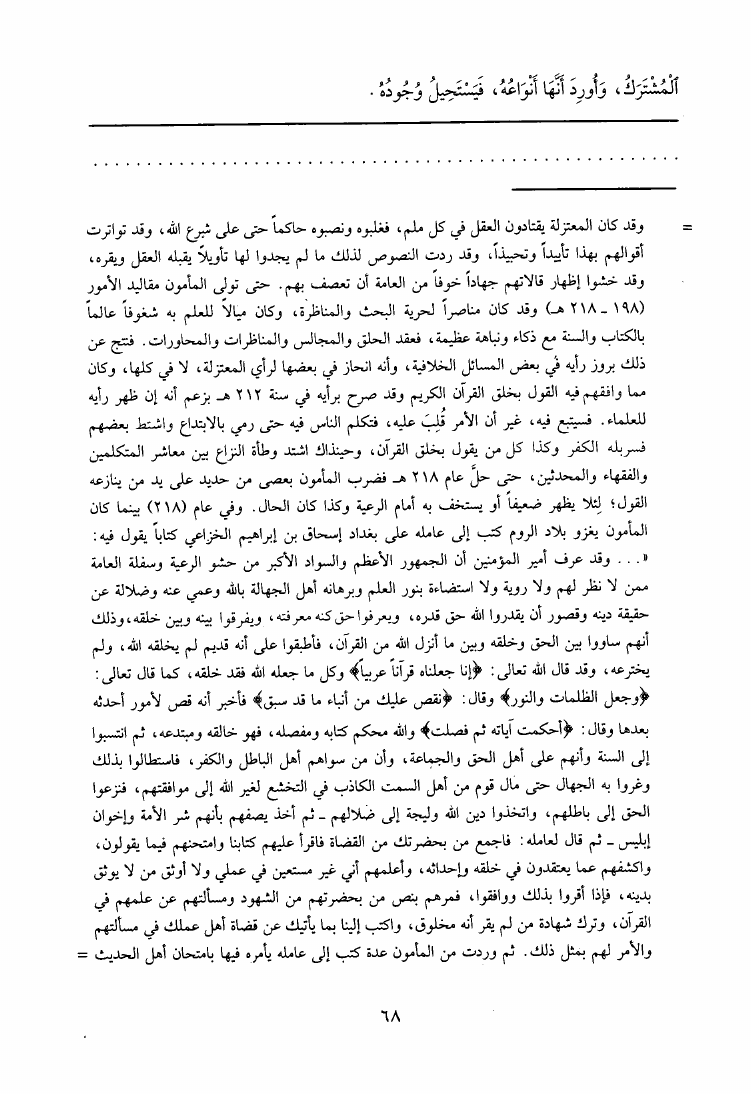 ٱلْمُشْتَرَكُ، وَأُورِدَ أَنَّهَا أَنْوَاعُهُ، فَيَسْتَحِيلُ وُجُودُهُ.
. . . . . . . . . . . . . . . . . . . . . . . . . . . . . . . . . . . . . . . . . . . . . . . . . . . . . . . .
= وقد كان المعتزلة يقتادون العقل في كل ملم، فغلبوه ونصبوه حاكماً حتى على شرع الله، وقد تواترت
أقوالهم بهذا تأييداً وتحبيذاً، وقد ردت النصوص لذلك ما لم يجدوا لها تأويلاً يقبله العقل ويقره،
وقد خشوا إظهار قالاتهم جهاداً خوفاً من العامة أن تعصف بهم. حتى تولى المأمون مقاليد الأمور
(١٩٨ ـ ٢١٨ هـ) وقد كان مناصراً لحرية البحث والمناظرة، وكان ميالاً للعلم به شغوفاً عالماً
بالكتاب والسنة مع ذكاء ونباهة عظيمة، فعقد الحلق والمجالس والمناظرات والمحاورات. فنتج عن
ذلك بروز رأيه في بعض المسائل الخلافية، وأنه انحاز في بعضها لرأي المعتزلة، لا في كلها، وكان
مما وافقهم فيه القول بخلق القرآن الكريم وقد صرح برأيه في سنة ٢١٢ هـ بزعم أنه إن ظهر رأيه
للعلماء. فسيتبع فيه، غير أن الأمر قُلِبَ عليه، فتكلم الناس فيه حتى رمي بالابتداع واشتط بعضهم
فسربله الكفر وكذا كل من يقول بخلق القرآن، وحينذاك اشتد وطأة النزاع بين معاشر المتكلمين
والفقهاء والمحدثين، حتى حلَّ عام ٢١٨ هـ فضرب المأمون بعصى من حديد على يد من ينازعه
القول؛ لِئلا يظهر ضعيفاً أو يستخف به أمام الرعية وكذا كان الحال. وفي عام (٢١٨) بينما كان
المأمون يغزو بلاد الروم كتب إلى عامله على بغداد إسحاق بن إبراهيم الخزاعي كتاباً يقول فيه:
«... وقد عرف أمير المؤمنين أن الجمهور الأعظم والسواد الأكبر من حشو الرعية وسفلة العامة
ممن لا نظر لهم ولا روية ولا استضاءة بنور العلم وبرهانه أهل الجهالة بالله وعمي عنه وضلالة عن
حقيقة دينه وقصور أن يقدروا الله حق قدره، ويعرفوا حق كنه معرفته، ويفرقوا بينه وبين خلقه، وذلك
أنهم ساووا بين الحق وخلقه وبين ما أنزل الله من القرآن، فأطبقوا على أنه قديم لم يخلقه الله، ولم
يخترعه، وقد قال الله تعالى: ﴿إنا جعلناه قرآناً عربياً﴾ وكل ما جعله الله فقد خلقه، كما قال تعالى:
﴿وجعل الظلمات والنور﴾ وقال: ﴿نقص عليك من أنباء ما قد سبق﴾ فأخبر أنه قص لأمور أحدثه
بعدها وقال: ﴿أحكمت آياته ثم فصلت﴾ والله محكم كتابه ومفصله، فهو خالقه ومبتدعه، ثم انتسبوا
إلى السنة وأنهم على أهل الحق والجماعة، وأن من سواهم أهل الباطل والكفر، فاستطالوا بذلك
وغروا به الجهال حتى مال قوم من أهل السمت الكاذب في التخشع لغير الله إلى موافقتهم، فنزعوا
الحق إلى باطلهم، واتخذوا دين الله وليجة إلى ضلالهم ـ ثم أخذ يصفهم بأنهم شر الأمة وإخوان
إبليس ـ ثم قال لعامله: فاجمع من بحضرتك من القضاة فاقرأ عليهم كتابنا وامتحنهم فيما يقولون،
واكشفهم عما يعتقدون في خلقه وإحداثه، وأعلمهم أني غير مستعين في عملي ولا أوثق من لا يوثق
بدينه، فإذا أقروا بذلك ووافقوا، فمرهم بنص من بحضرتهم من الشهود ومسألتهم عن علمهم في
القرآن، وترك شهادة من لم يقر أنه مخلوق، واكتب إلينا بما يأتيك عن قضاة أهل عملك في مسألتهم
والأمر لهم بمثل ذلك. ثم وردت من المأمون عدة كتب إلى عامله يأمره فيها بامتحان أهل الحديث =
٦٨